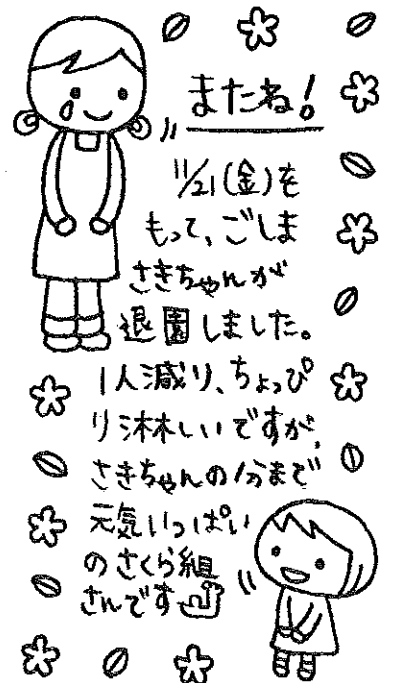 またね!
11/21(金)を
もって、ごしま
さきちゃんが
退園しました。
1人減り、ちょっぴ
り淋しいですが、
さきちゃんの分まで
元気いっぱい
のさくら組
さんです